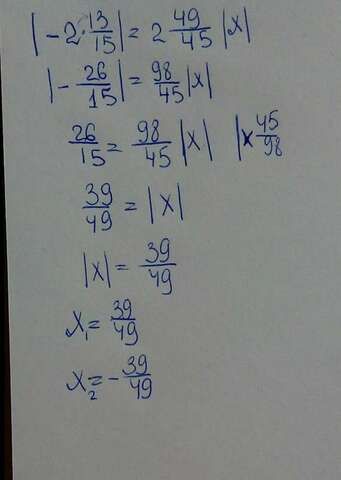 |-2·13/15| = 2 49/45 |x|
|-26/15| = 98/45 |x|
26/15 = 98/45 |x|   |× 45/98
39/49 = |x|
|x| = 39/49
x₁ = 39/49
x₂ = -39/49